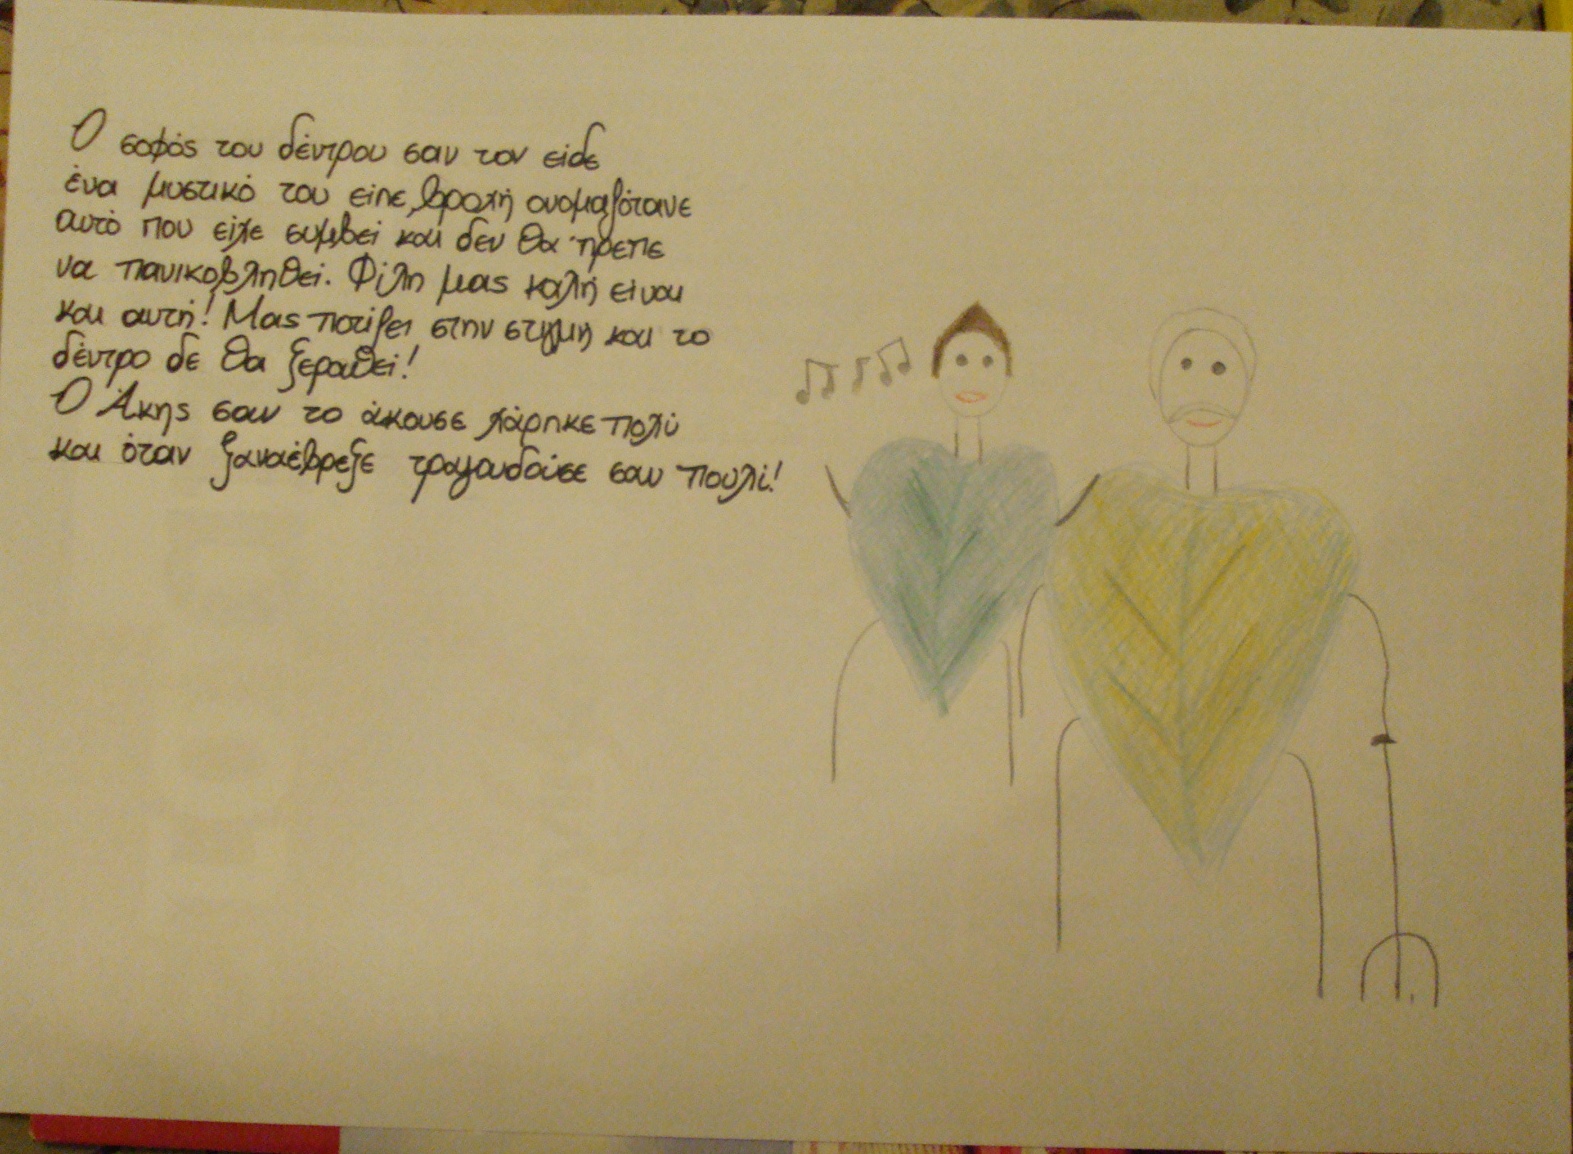 Ο σοφός του δέντρου σαν τον είδε
ένα μυστικό του είπε, βροχή ονομαζότανε
αυτό που είχε συμβεί και δεν θα 'πρεπε
να πανικοβληθεί. Φίλη μας καλή είναι
και αυτή! Μας ποτίζει στην στιγμή και το
δέντρο δε θα ξεραθεί!
Ο Άκης σαν το άκουσε χάρηκε πολύ
και όταν ξαναέβρεξε τραγουδούσε σαν πουλί!